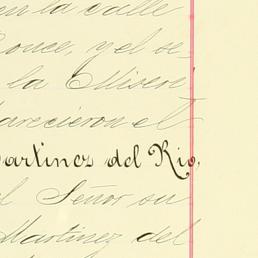 en la calle
once, y el se-
la Miseri
arecieron el
Martinez del Rio,
el Señor su
Martinez del